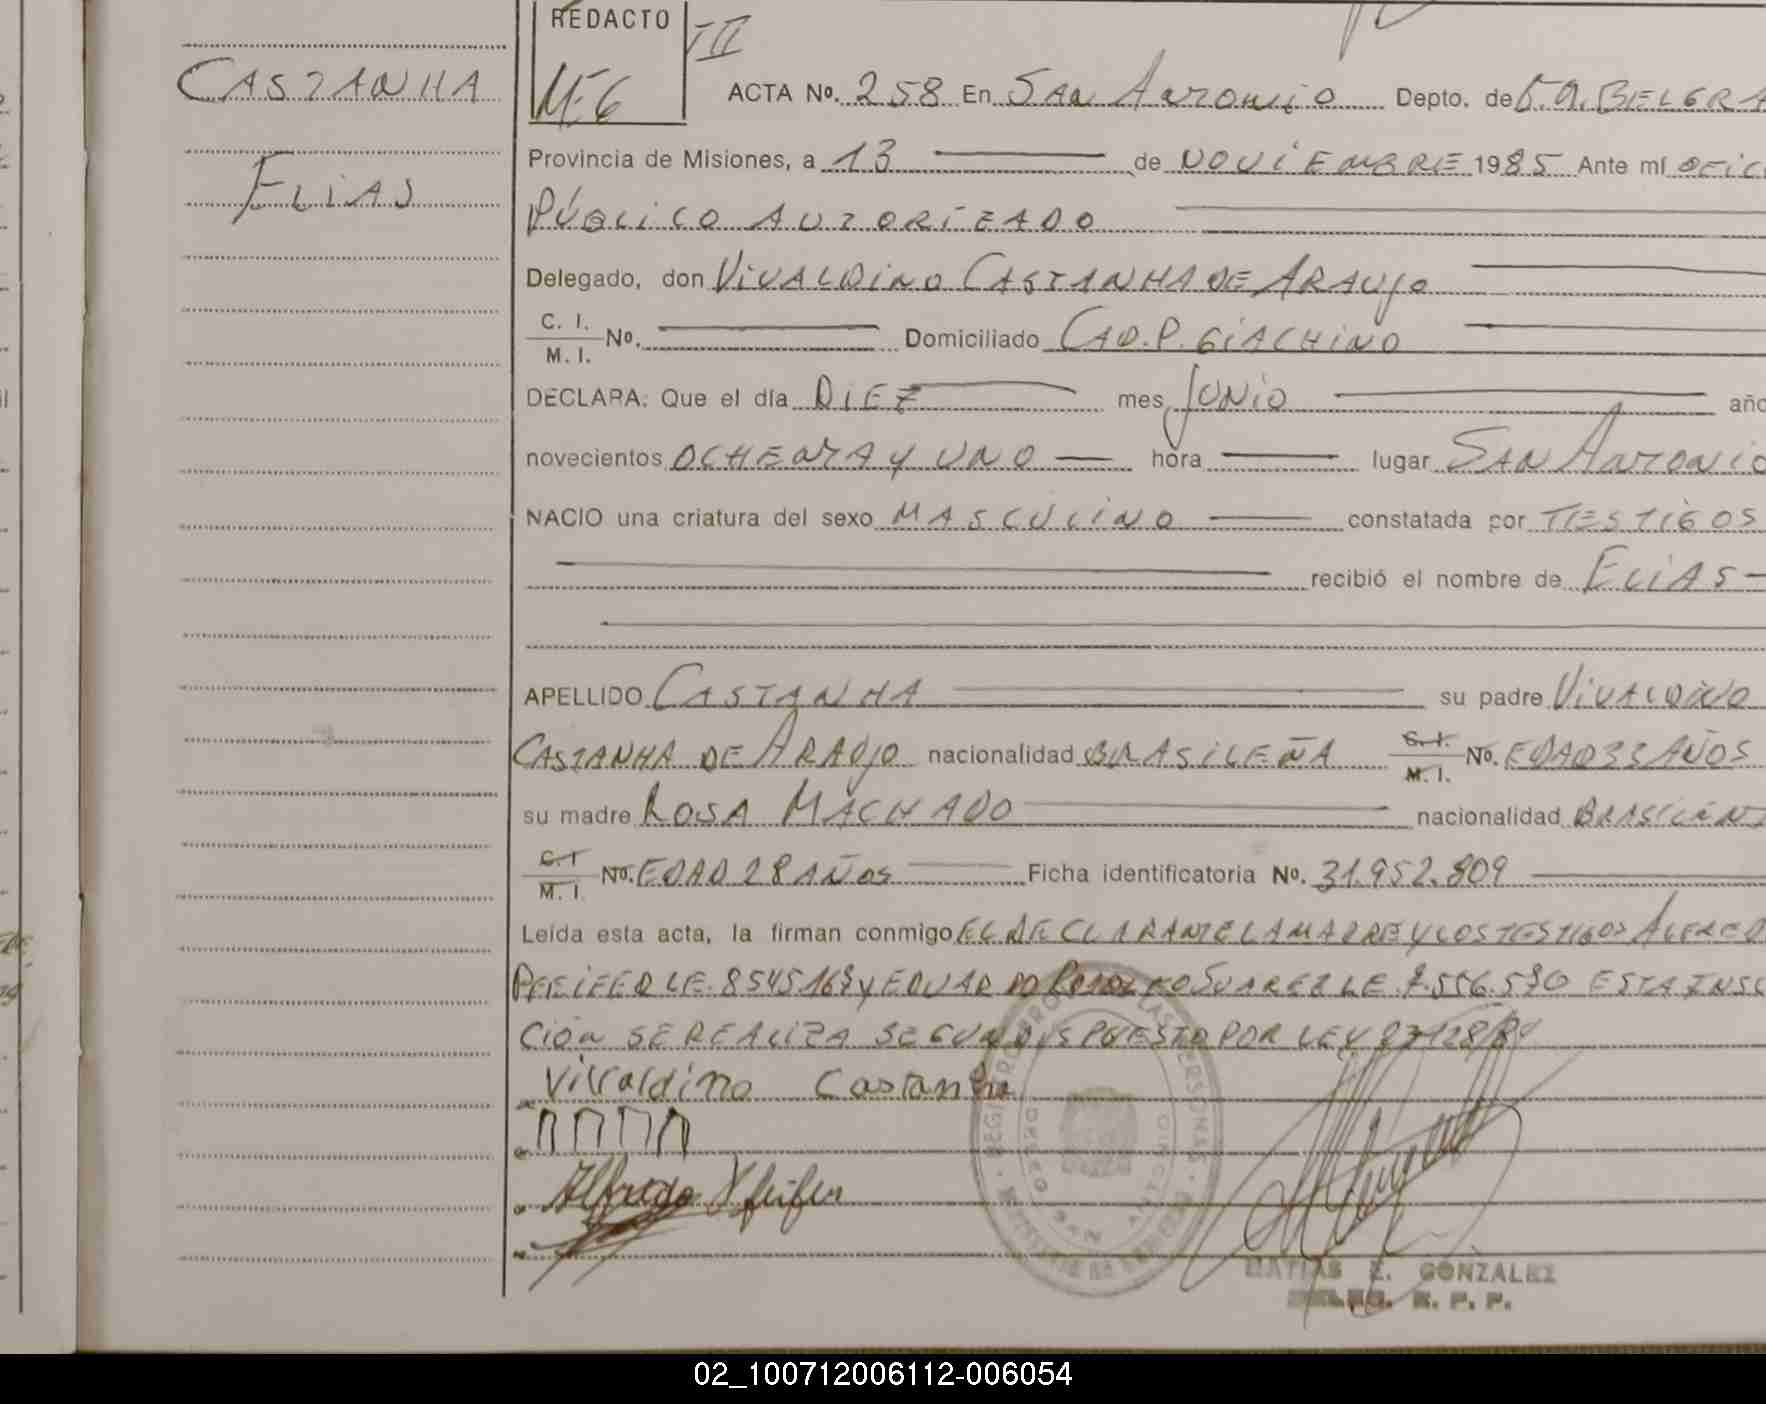 REDACTO
III
CASTANHA
MEG
ACTA Nº. 258 En SAN ANTONIO Depto. de G.M. BELGRA
Provincia de Misiones, a 13 de NOVIEMBRE 1985 Ante mí OFICI
ELIAS
PÚBLICO AUTORIZADO
Delegado, don VIVALDINO CASTANHA DE ARAUJO
C. I.
M. I. Nº. Domiciliado CAO. P. GIACHINO
DECLARA: Que el día DIEZ mes JUNIO año
novecientos OCHENTA Y UNO hora lugar SAN ANTONIO
NACIO una criatura del sexo MASCULINO constatada por TESTIGOS
recibió el nombre de ELIAS
APELLIDO CASTANHA su padre VIVALDINO
CASTANHA DE ARAUJO nacionalidad BRASILEÑA C. I. M. I. Nº. EDAD 33 AÑOS
su madre ROSA MACHADO nacionalidad BRASILEÑ
C. I. M. I. Nº. EDAD 28 AÑOS Ficha identificatoria Nº. 31.952.809
Leída esta acta, la firman conmigo EL DECLARANTE LA MADRE Y LOS TESTIGOS ALFREDO
PFEIFER LE. 8545.168 y EDUARDO SUAREZ LE. ESTA INSC
CIÓN SE REALIZA SEGUN DISPUESTO POR LEY
Vivaldino Castanha
Alfredo Pfeifer
REGISTRO PROVINCIAL DE LAS PERSONAS
SAN ANTONIO
MATIAS E. GONZALEZ
R. P. P.
02_100712006112-006054